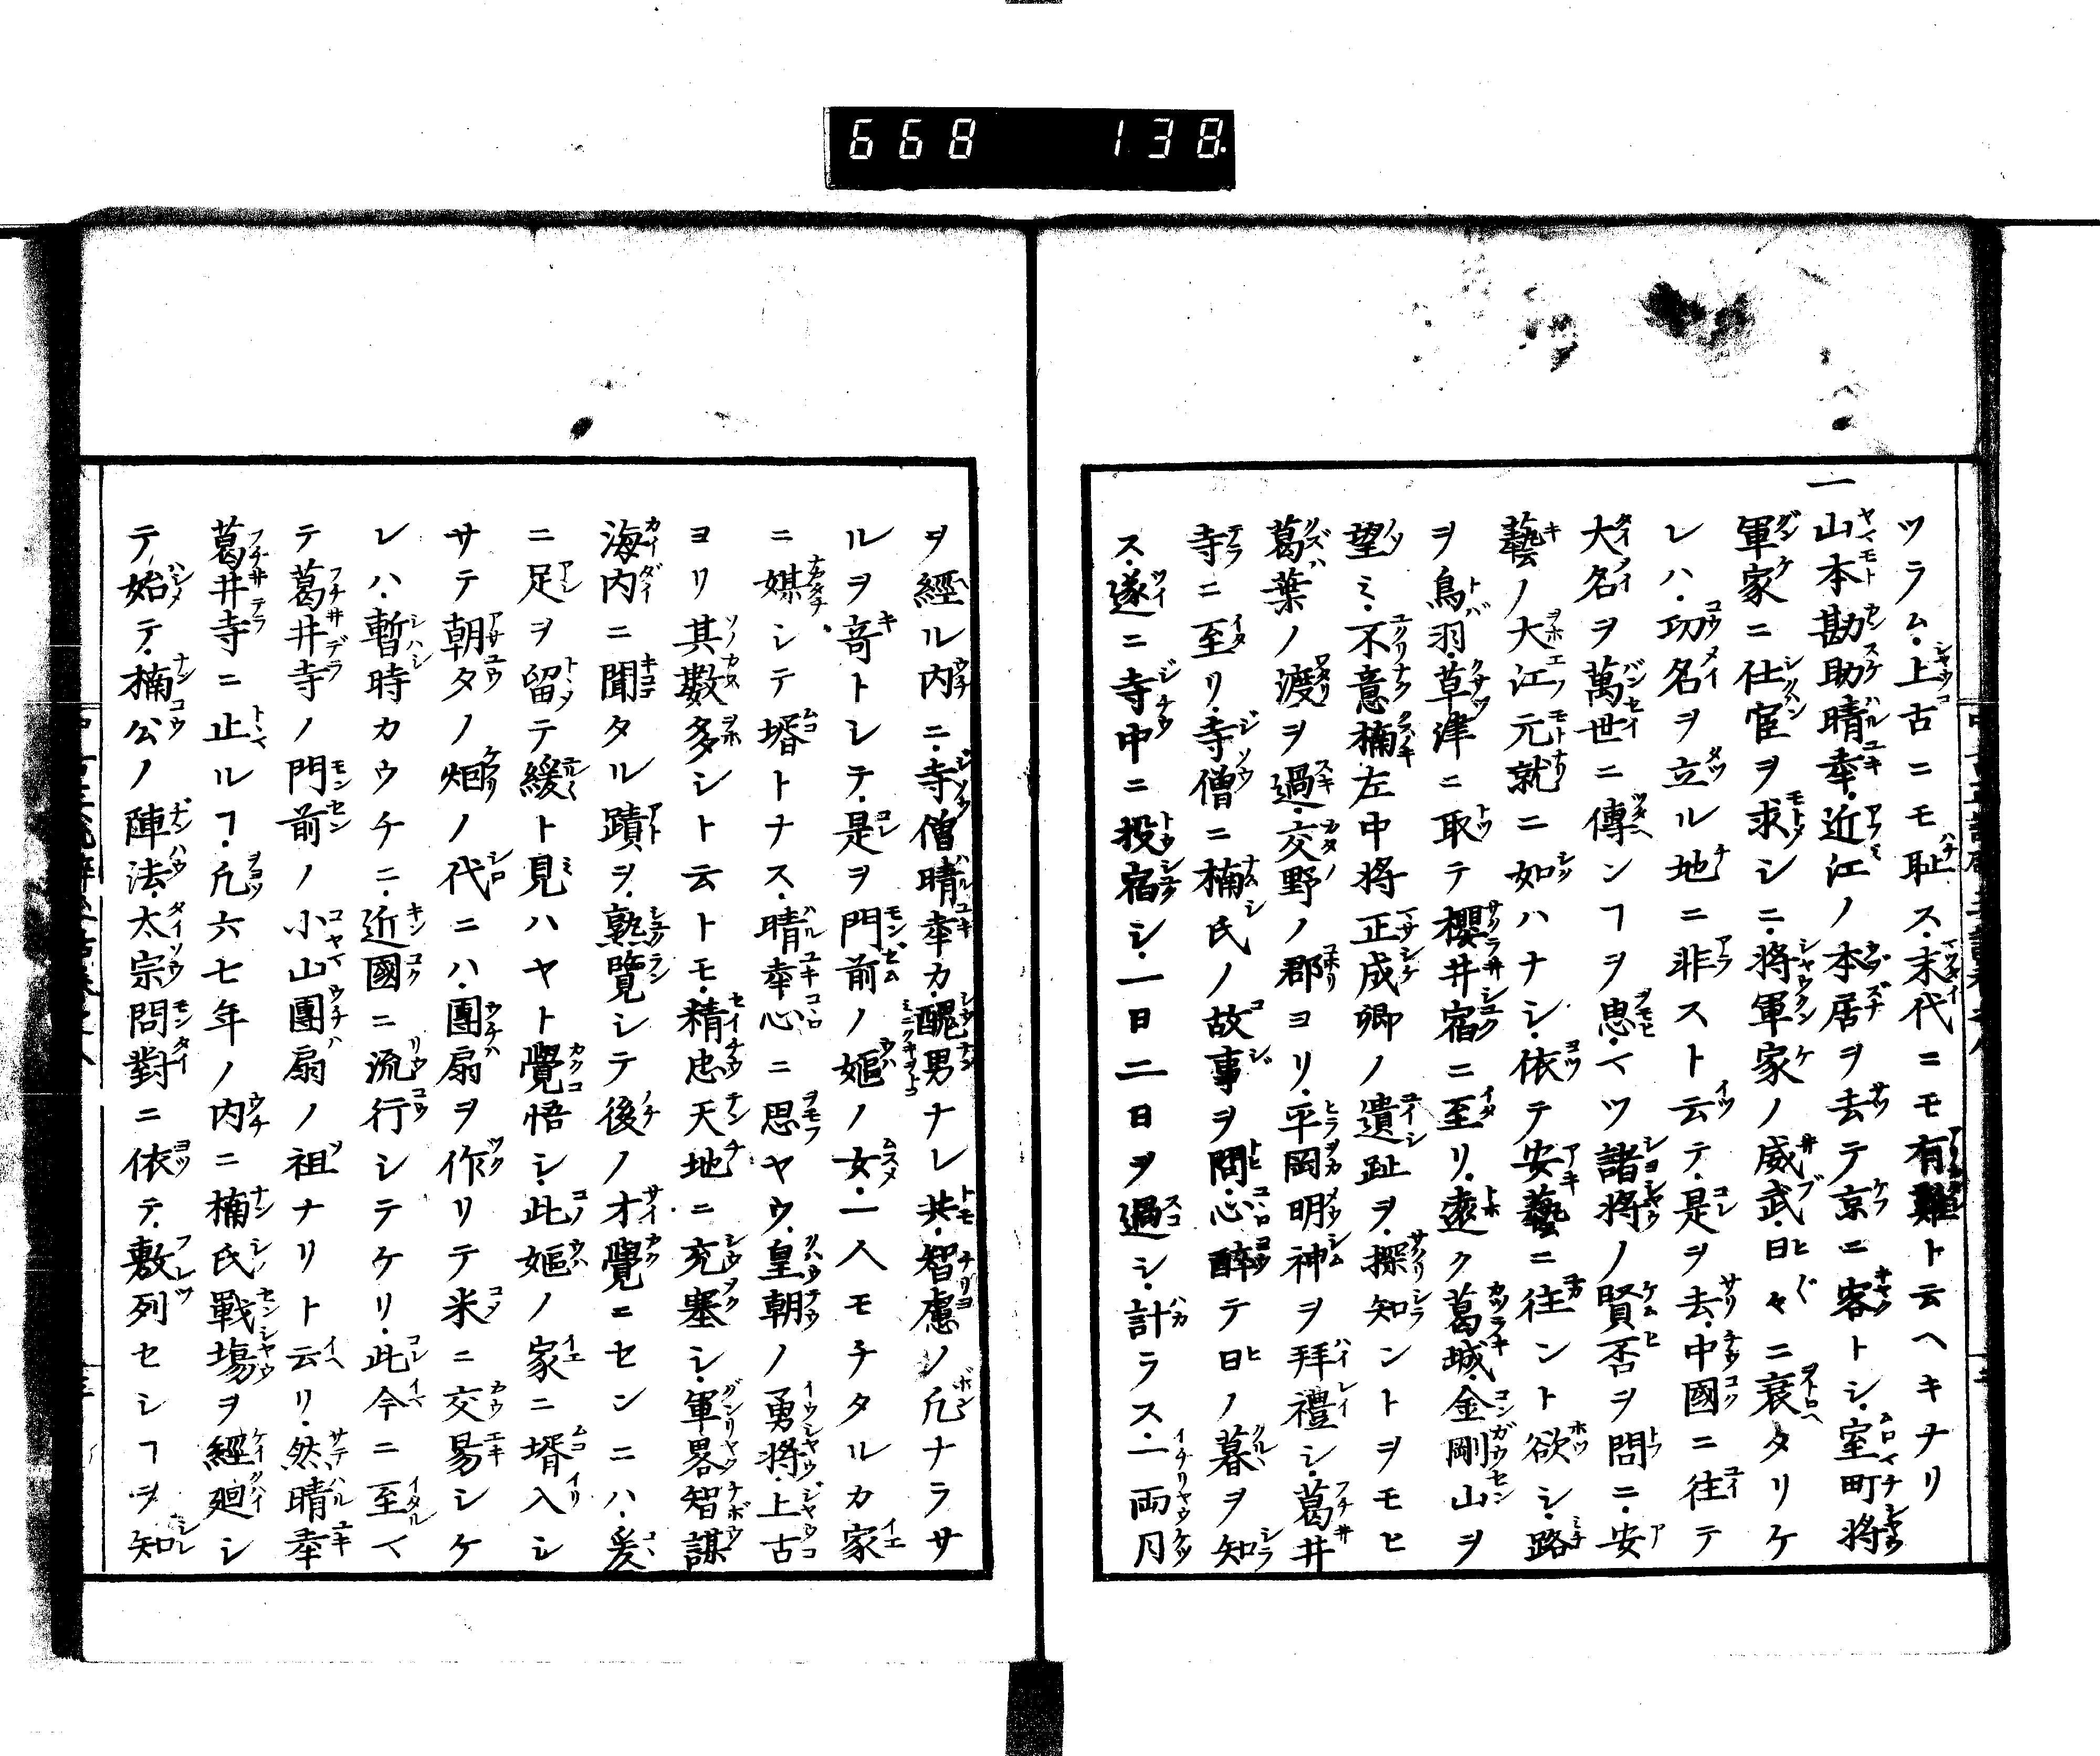 668 138
ツラム上古ニモ耻ス末代ニモ有難ト云ヘキナリ
一山本勘助晴幸近江ノ本居ヲ去テ京ニ客トシ室町将
軍家ニ仕宦ヲ求シニ将軍家ノ威武日々ニ衰タリケ
レハ功名ヲ立ル地ニ非スト云テ是ヲ去中國ニ往テ
大名ヲ萬世ニ傳ンヿヲ思ヘツ諸将ノ賢否ヲ問ニ安
藝ノ大江元就ニ如ハナシ依テ安藝ニ往ント欲シ路
ヲ鳥羽草津ニ取テ櫻井宿ニ至リ遠ク葛城金剛山ヲ
望ミ不意楠左中将正成卿ノ遺趾ヲ探知ントヲモヒ
葛葉ノ渡ヲ過交野ノ郡ヨリ平岡明神ヲ拜禮シ葛井
寺ニ至リ寺僧ニ楠氏ノ故事ヲ問心醉テ日ノ暮ヲ知
ス遂ニ寺中ニ投宿シ一日二日ヲ過シ計ラス一両月
ヲ經ル内ニ寺僧晴幸カ醜男ナレ共智慮ノ凡ナラサ
ルヲ竒トシテ是ヲ門前ノ嫗ノ女一人モチタルカ家
ニ媒シテ壻トナス晴幸心ニ思ヤウ皇朝ノ勇将上古
ヨリ其數多シト云トモ精忠天地ニ充塞シ軍畧智謀
海内ニ聞タル蹟ヲ熟覽シテ後ノ才覺ニセンニハ爰
ニ足ヲ留テ緩ト見ハヤト覺悟シ此嫗ノ家ニ壻入シ
サテ朝夕ノ烟ノ代ニハ團扇ヲ作リテ米ニ交易シケ
レハ暫時カウチニ近國ニ流行シテケリ此今ニ至ヘ
テ葛井寺ノ門前ノ小山團扇ノ祖ナリト云リ然晴幸
葛井寺ニ止ルヿ凡六七年ノ内ニ楠氏戰塲ヲ經廻シ
テ始テ楠公ノ陣法太宗問對ニ依テ敷列セシヿヲ知